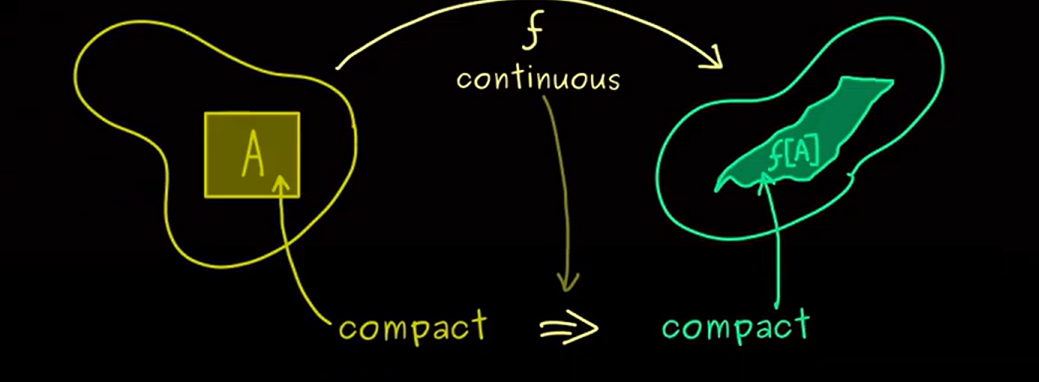 f
continuous
A
f[A]
compact ⇒ compact